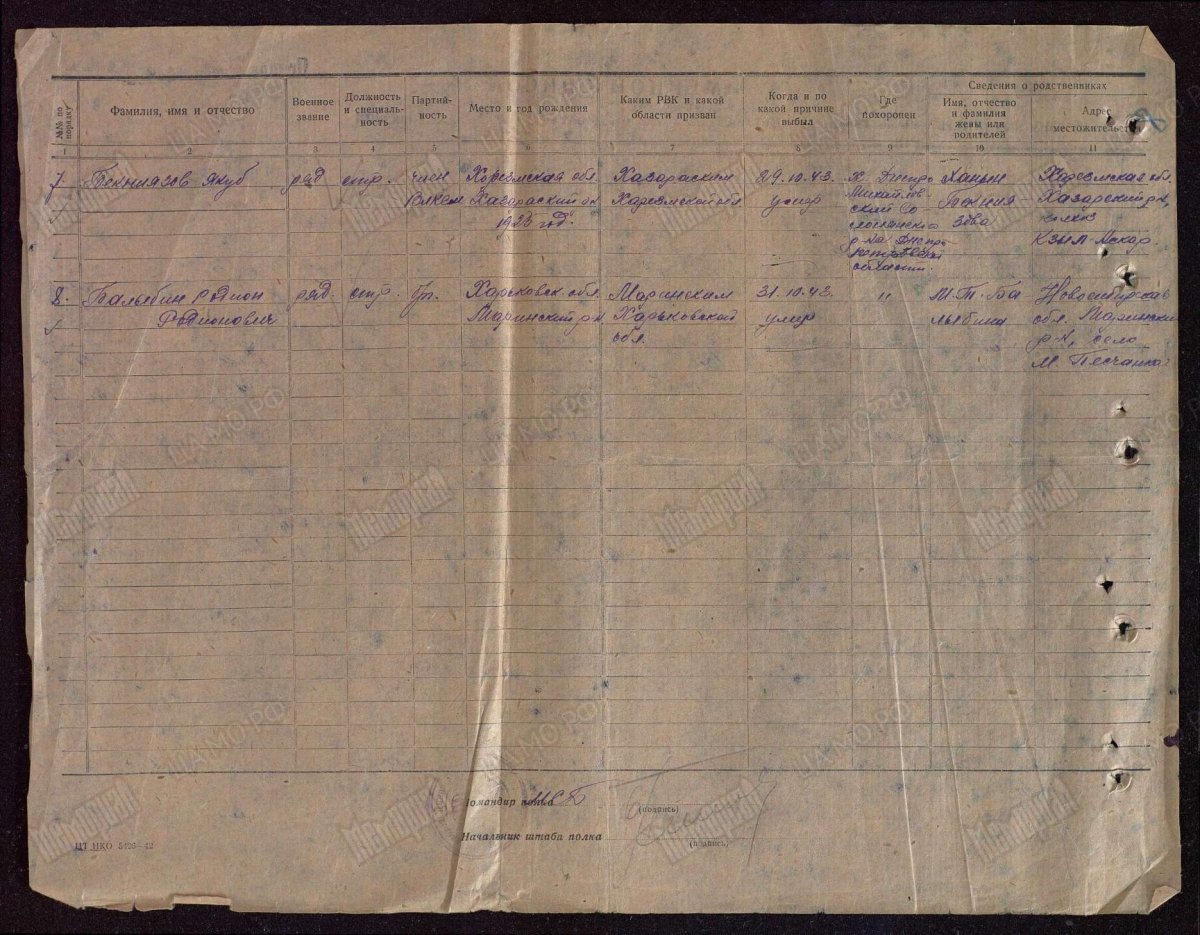 Сведения о родственниках
№№ по порядку
Фамилия, имя и отчество
Военное звание
Должность и специальность
Партийность
Место и год рождения
Каким РВК и какой области призван
Когда и по какой причине выбыл
Где похоронен
Имя, отчество и фамилия жены или родителей
Адрес местожительства
1 2 3 4 5 6 7 8 9 10 11
7. Бекниязов Якуб ряд стр. член Хорезмская обл. Хазараским 29.10.43. х. Днепро Ханым Хорезмская обл.
ВЛКСМ Хазараский р-н Хорезмской обл умер Михайлов Бекния- Хазарский р-н,
1925 год. ский Со зова колхоз
лонянского
р-на Днепро Кзыл-Аскар.
петровской
области.
8. Балыбин Родион ряд. стр. б/п. Харьковск. обл. Маринским 31.10.43. " М.Т. Ба Новосибирская
Родионович Маринский р-н Харьковской умер лыбина обл. Маринский
обл. р-н, село
М. Песчанка.
Командир полка
(подпись)
Начальник штаба полка
(подпись)
ЦТ НКО 5426—42
Мемориал
ЦА МО РФ